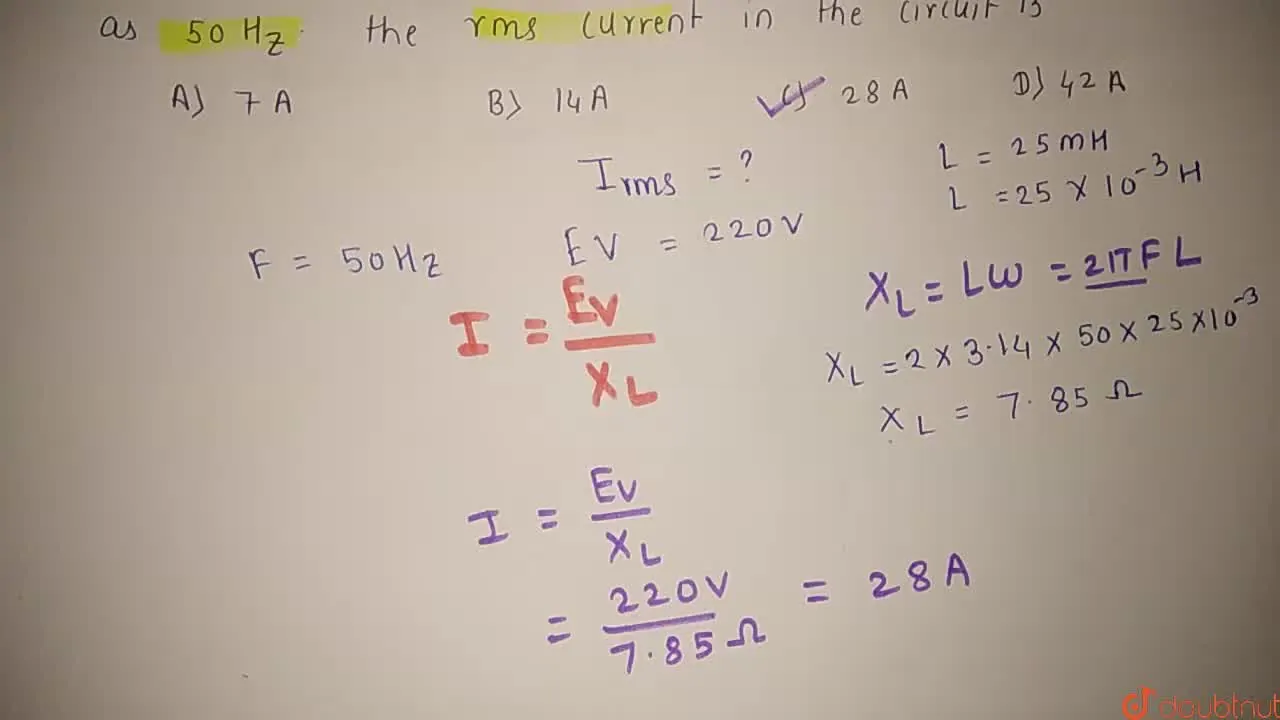 as 50 Hz. the rms current in the circuit is
A) 7 A B) 14 A C) 28 A D) 42 A
I rms = ?
L = 25 mH
L = 25 × 10⁻³ H
F = 50 Hz
EV = 220 V
I = Ev / XL
XL = Lω = 2πFL
XL = 2 × 3.14 × 50 × 25 × 10⁻³
XL = 7.85 Ω
I = Ev / XL
= 220V / 7.85 Ω = 28 A
doubtnut